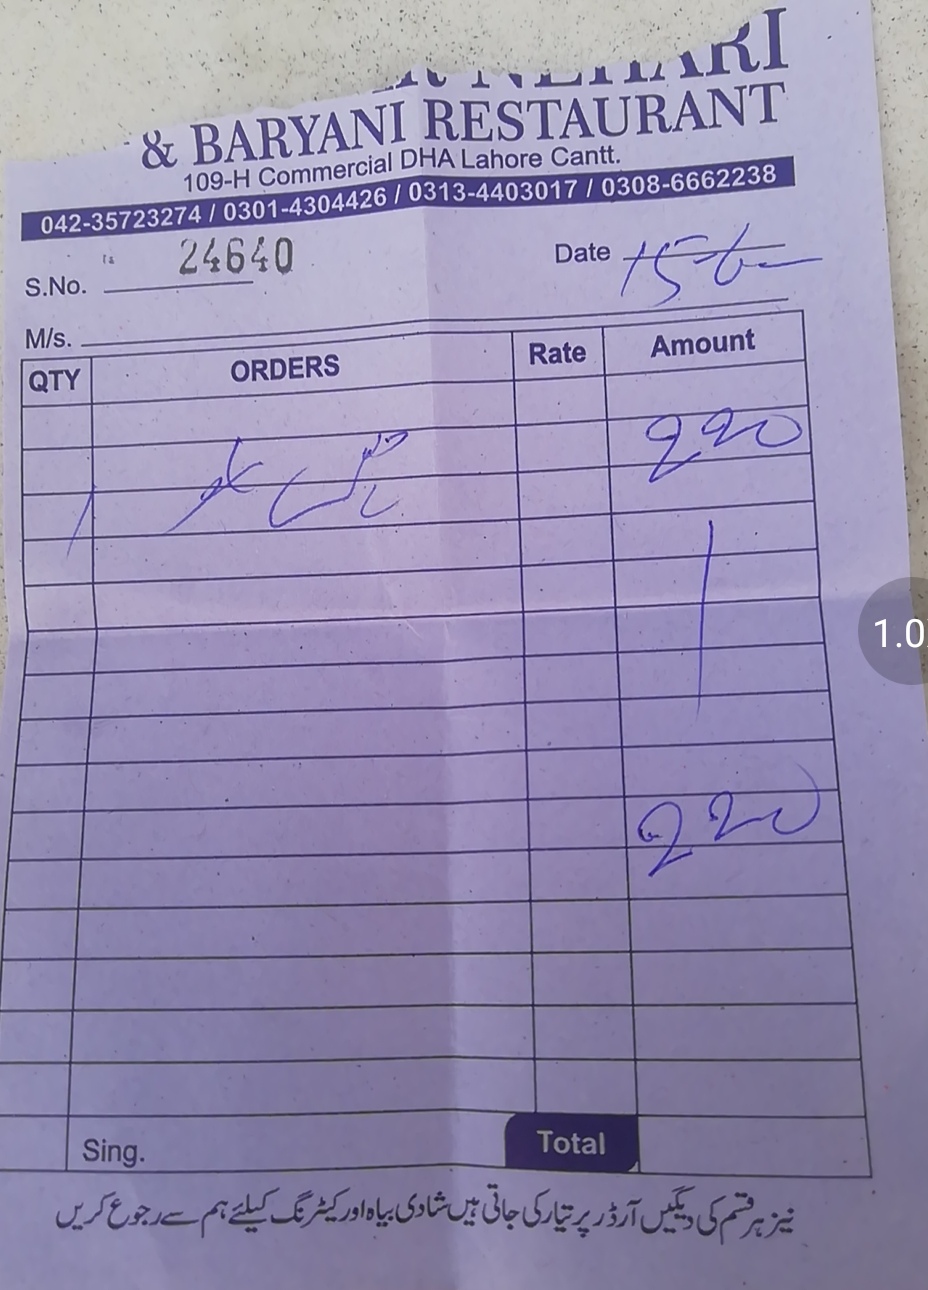 NEHARI
& BARYANI RESTAURANT
109-H Commercial DHA Lahore Cantt.
042-35723274 / 0301-4304426 / 0313-4403017 / 0308-6662238
S.No. 24640 Date 15-6
M/s.
QTY ORDERS Rate Amount
1 220
220
Sing. Total
نیز ہر قسم کی دیگیں آرڈر پر تیار کی جاتی ہیں شادی بیاہ اور کیٹرنگ کیلئے ہم سے رجوع کریں
1.0